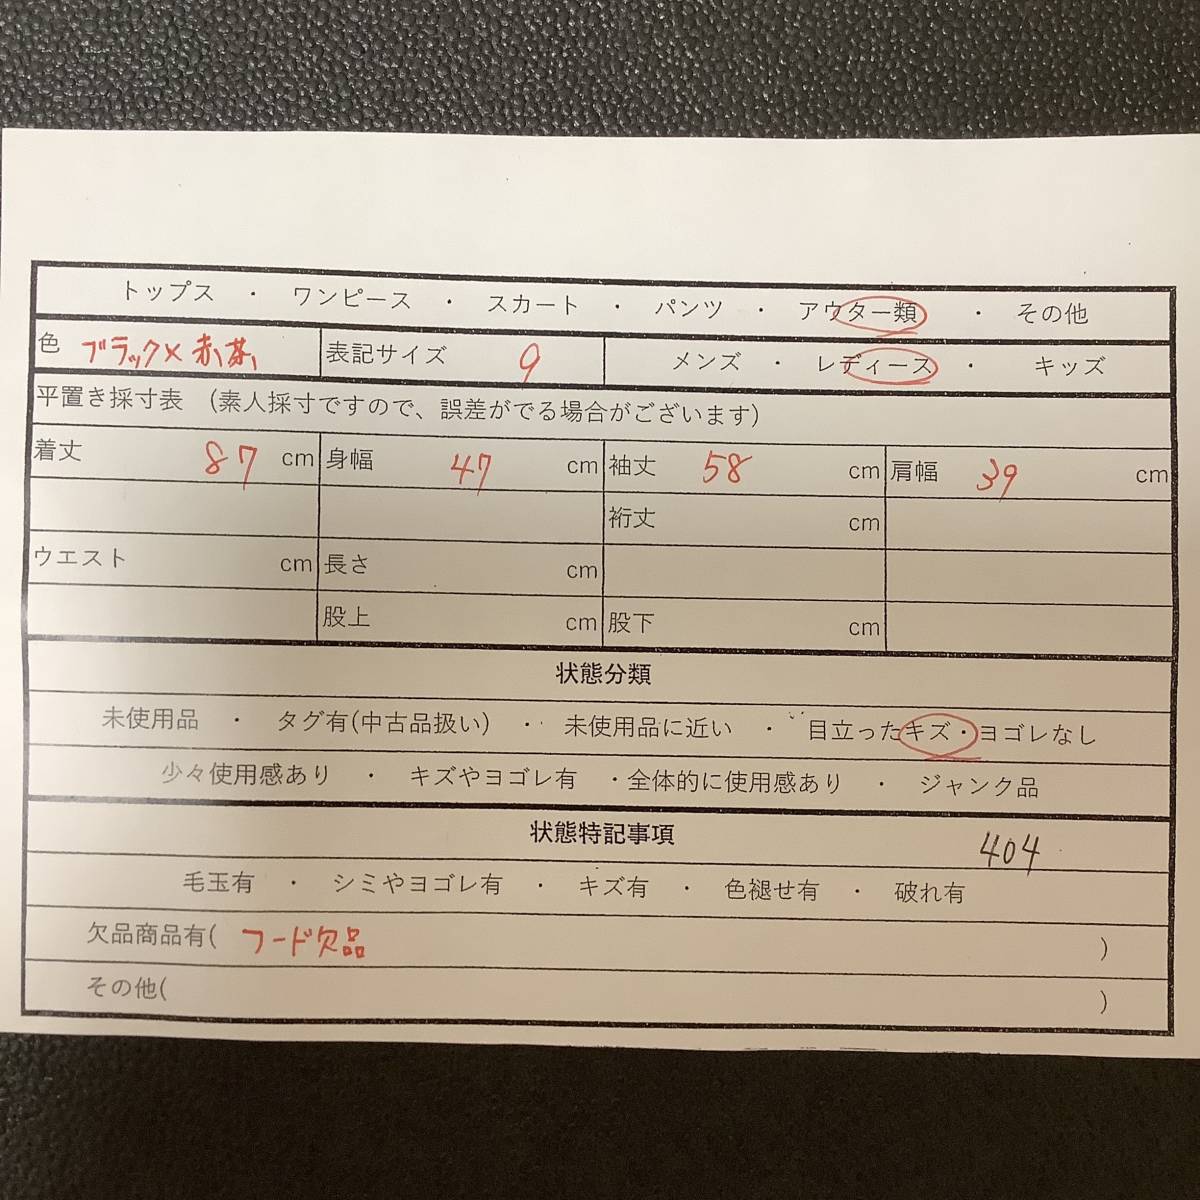 トップス ・ ワンピース ・ スカート ・ パンツ ・ アウター類 ・ その他
色 ブラック×赤茶 表記サイズ 9 メンズ ・ レディース ・ キッズ
平置き採寸表 (素人採寸ですので、誤差がでる場合がございます)
着丈 87 cm 身幅 47 cm 袖丈 58 cm 肩幅 39 cm
裄丈 cm
ウエスト cm 長さ cm
股上 cm 股下 cm
状態分類
未使用品 ・ タグ有(中古品扱い) ・ 未使用品に近い ・ 目立ったキズ・ヨゴレなし
少々使用感あり ・ キズやヨゴレ有 ・全体的に使用感あり ・ ジャンク品
状態特記事項 404
毛玉有 ・ シミやヨゴレ有 ・ キズ有 ・ 色褪せ有 ・ 破れ有
欠品商品有( フード欠品 )
その他( )